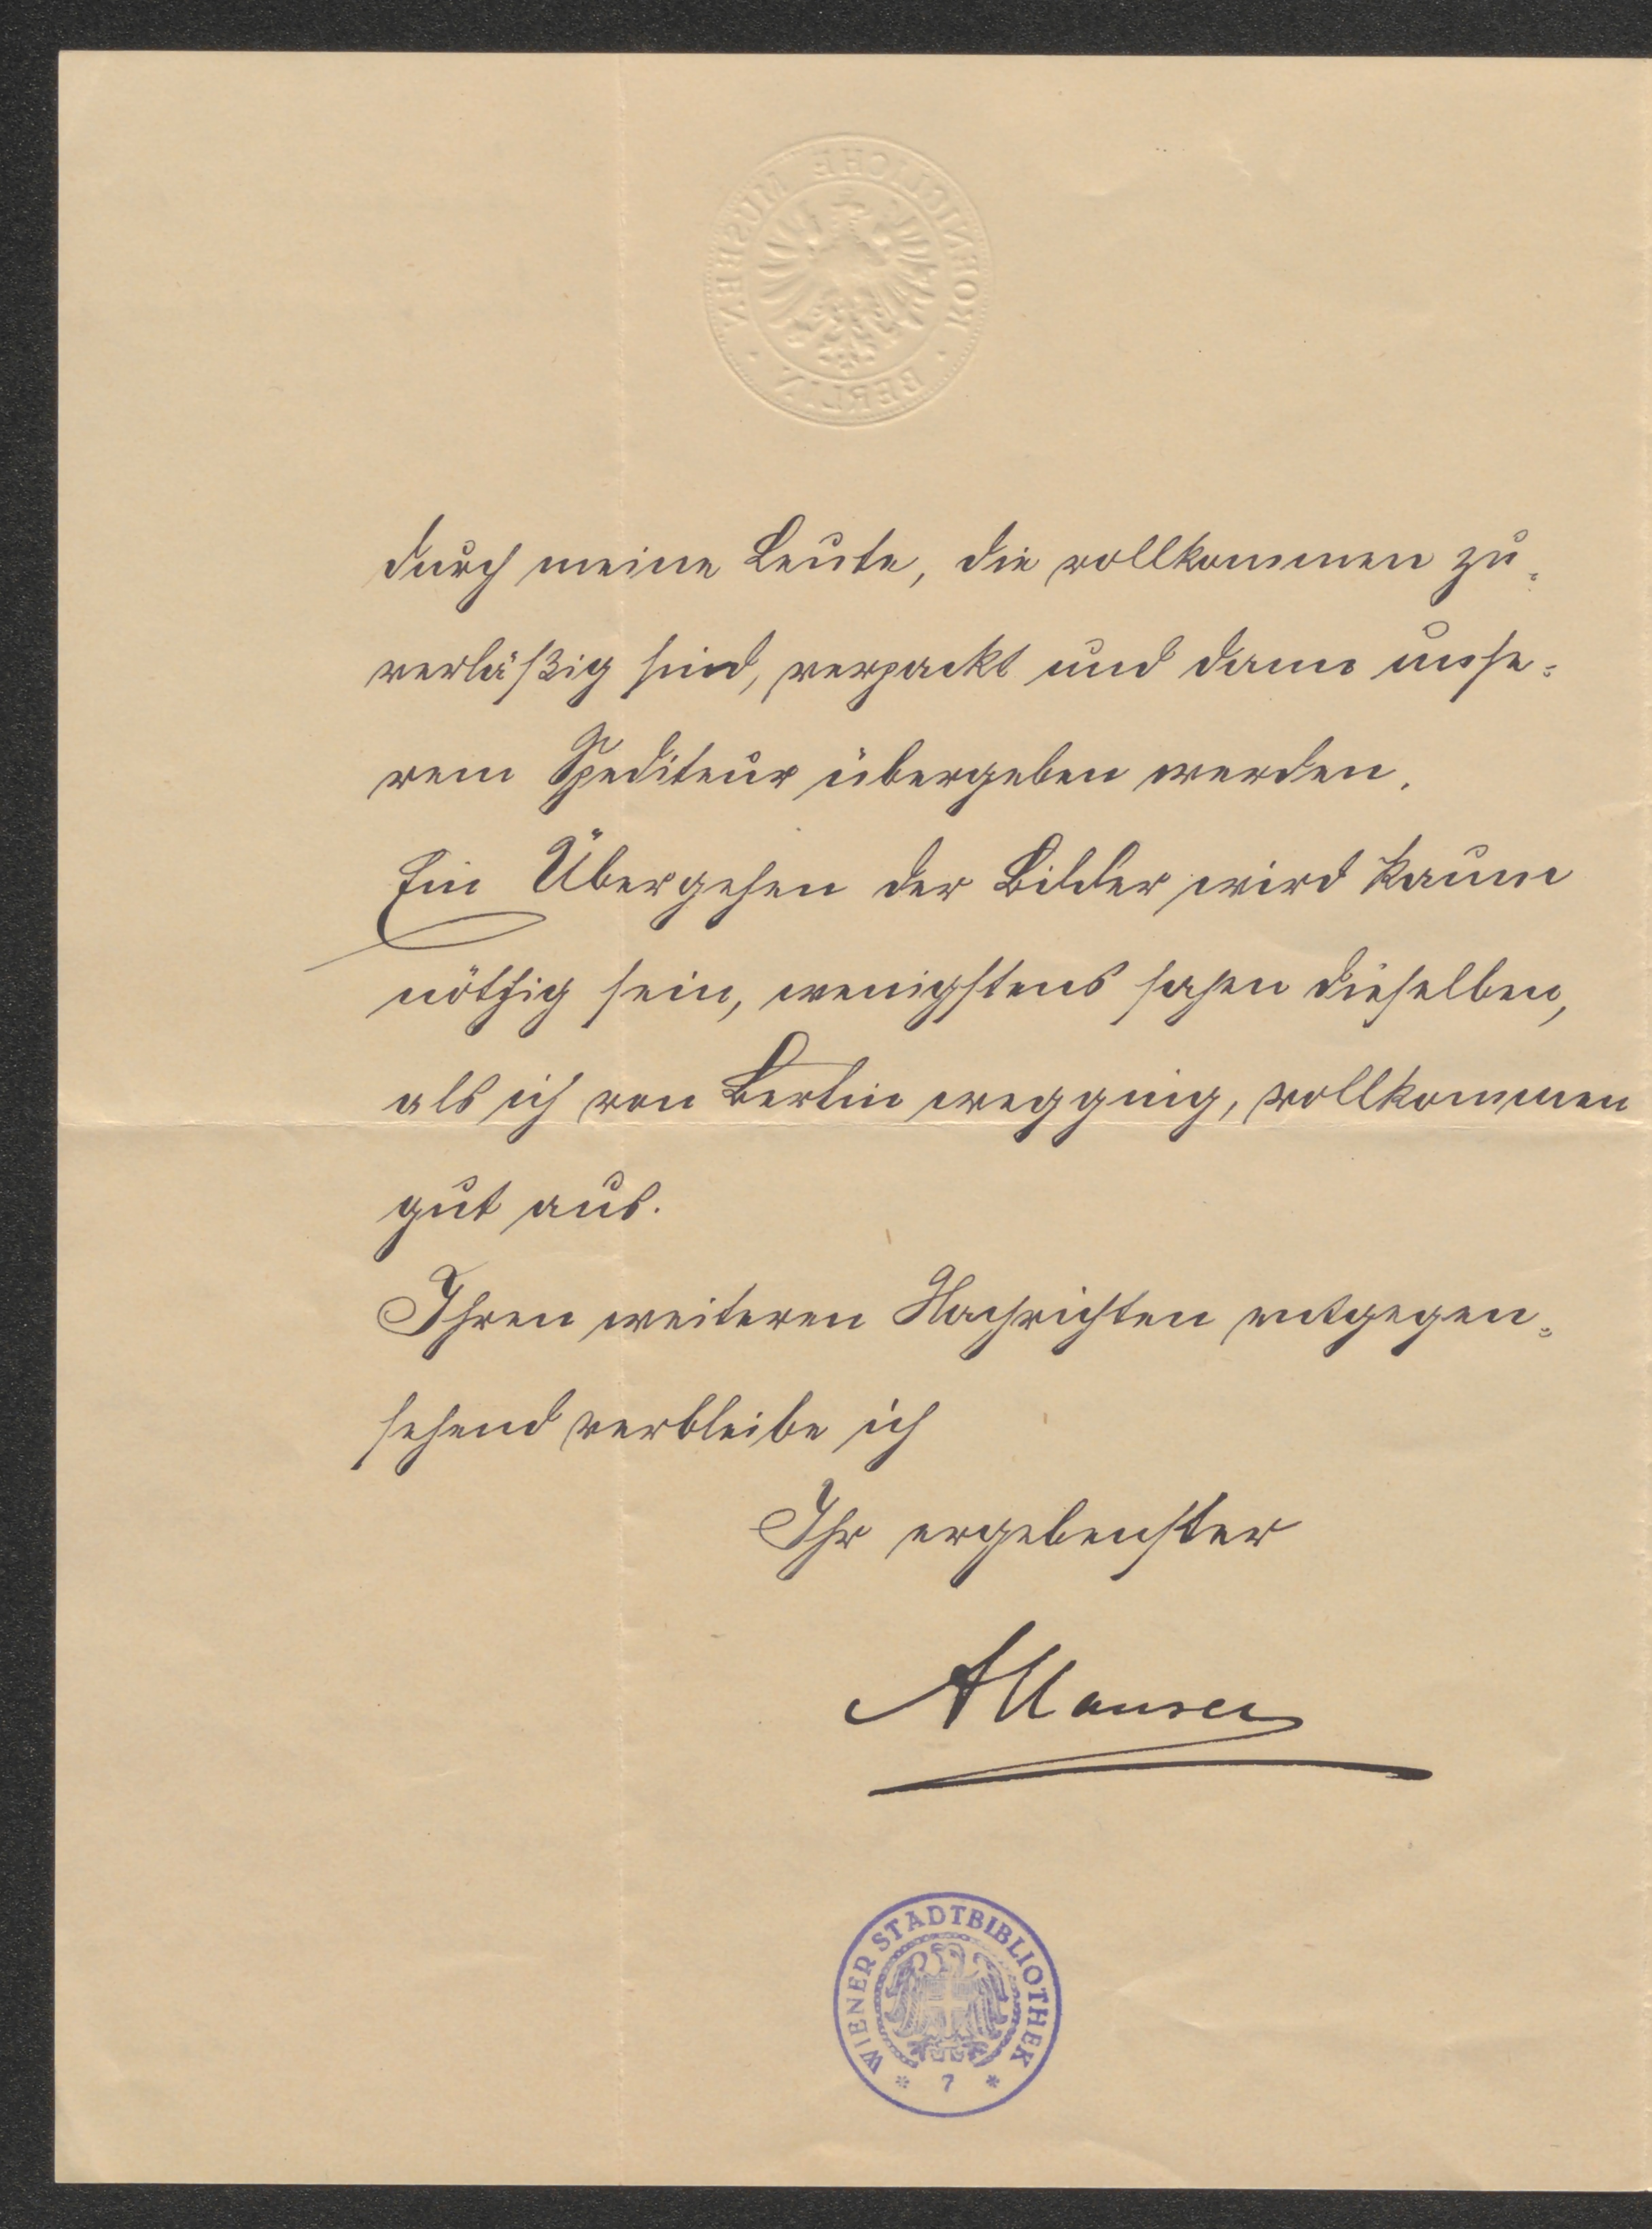 KOENIGLICHE MUSEEN · BERLIN ·
durch meine Leute, die vollkommen zu-
verläßig sind, verpackt und dann unse-
rem Spediteur übergeben werden.
Ein Übergehen der Bilder wird kaum
nöthig sein, wenigstens sahen dieselben,
als ich von Berlin wegging, vollkommen
gut aus.
Ihren weiteren Nachrichten entgegen-
sehend verbleibe ich
Ihr ergebenster
A Hauser
WIENER STADTBIBLIOTHEK
* 7 *